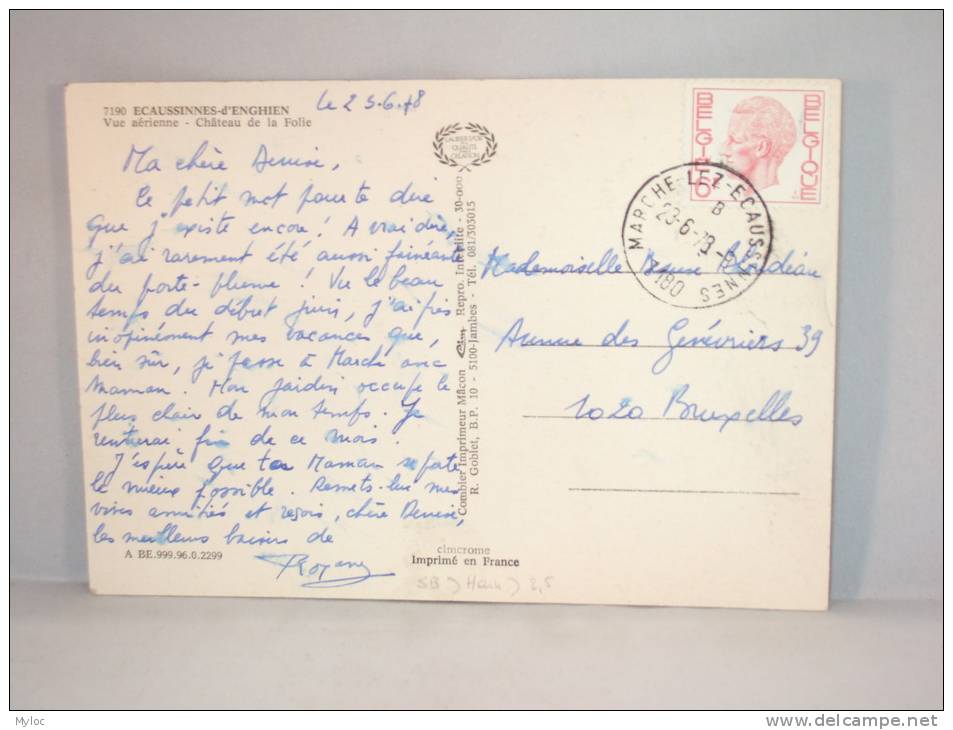 7190 ECAUSSINNES-d'ENGHIEN
Vue aérienne - Château de la Folie
Le 23.6.78
Ma chère Denise,
Ce petit mot pour te dire
que j'existe encore! A vrai dire,
j'ai rarement été aussi fainéante
du porte-plume! Vu le beau
temps du début juin, j'ai pris
inopinément mes vacances que,
bien sûr, je passe à Marche avec
Maman. Mon jardin occupe le
plus clair de mon temps. Je
rentrerai fin de ce mois.
J'espère que ta Maman se porte
le mieux possible. Remets-lui mes
vives amitiés et reçois, chère Denise,
les meilleurs baisers de
A BE.999.96.0.2299
Combier Imprimeur Mâcon Cim Repro. Interdite - 30-000
R. Goblet, B.P. 10 - 5100-Jambes - Tél. 081/303015
cimcrome
Imprimé en France
BELGIQUE
BELGIË
MARCHE-LEZ-ECAUSSINNES
B
23-6-78
7180
Mademoiselle Denise
Avenue des Genévriers 39
1020 Bruxelles
Myloc
delcampe.net